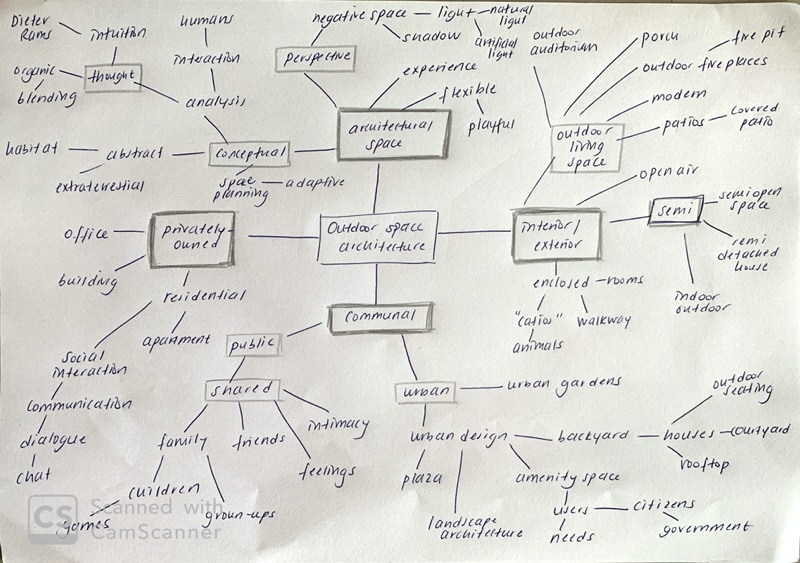 Dieter
Rams
intuition
humans
negative space
light
natural
light
shadow
artificial
light
outdoor
auditorium
porch
fire pit
organic
thought
blending
interaction
perspective
experience
outdoor fireplaces
analysis
flexible
modern
architectural
space
playful
outdoor
living
space
patios
covered
patio
habitat
abstract
conceptual
extraterrestial
space
planning
adaptive
open air
office
privately-
owned
Outdoor space
architecture
interior/
exterior
semi
semi open
space
building
remi
detached
house
residential
enclosed
rooms
indoor
outdoor
communal
"catios"
walkway
apartment
public
animals
social
interaction
shared
urban
urban gardens
outdoor
seating
communication
intimacy
dialogue
family
friends
urban design
backyard
houses
courtyard
chat
feelings
plaza
rooftop
children
amenity space
games
grown-ups
landscape
architecture
users
citizens
needs
government
CS
Scanned with
CamScanner